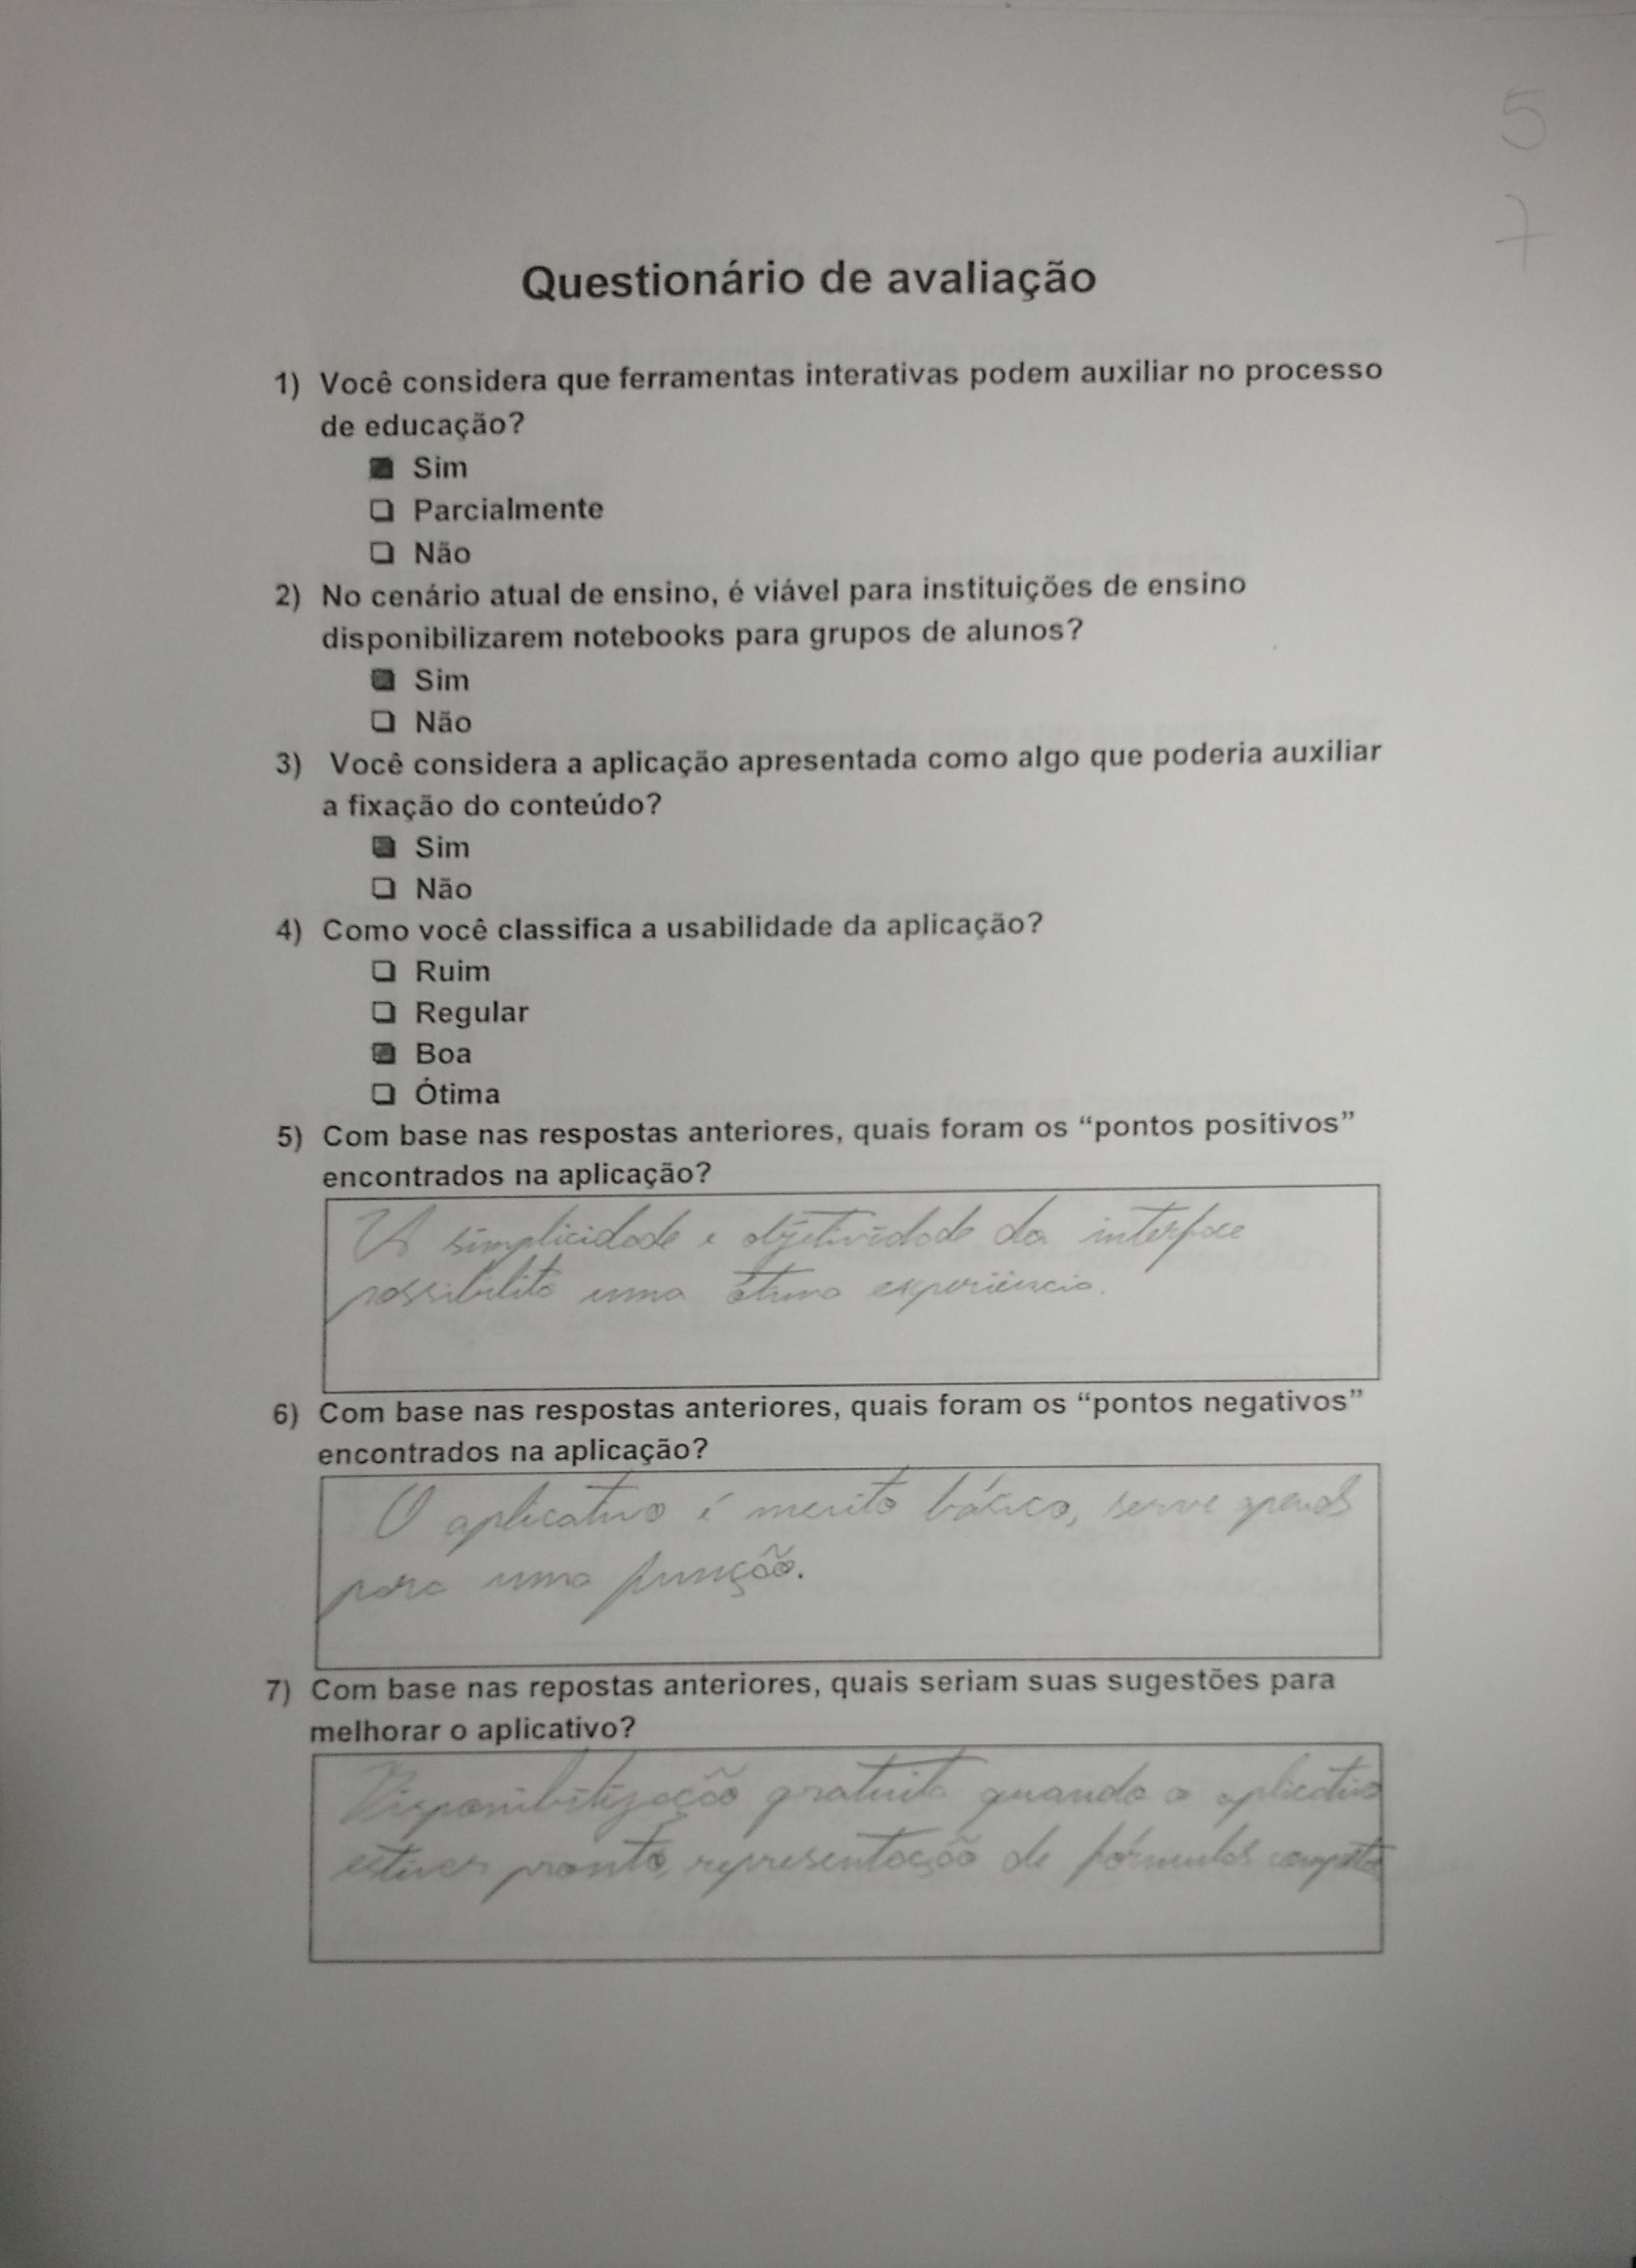 5
7
Questionário de avaliação
1) Você considera que ferramentas interativas podem auxiliar no processo
de educação?
Sim
Parcialmente
Não
2) No cenário atual de ensino, é viável para instituições de ensino
disponibilizarem notebooks para grupos de alunos?
Sim
Não
3) Você considera a aplicação apresentada como algo que poderia auxiliar
a fixação do conteúdo?
Sim
Não
4) Como você classifica a usabilidade da aplicação?
Ruim
Regular
Boa
Ótima
5) Com base nas respostas anteriores, quais foram os “pontos positivos”
encontrados na aplicação?
A simplicidade e objetividade da interface
possibilita uma ótima experiência.
6) Com base nas respostas anteriores, quais foram os “pontos negativos”
encontrados na aplicação?
O aplicativo é muito básico, serve apenas
para uma função.
7) Com base nas repostas anteriores, quais seriam suas sugestões para
melhorar o aplicativo?
Disponibilização gratuita quando o aplicativo
estiver pronto, representação de fórmulas